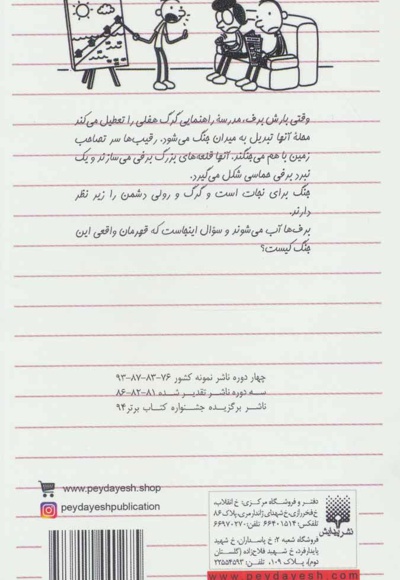 وقتی بارش برف، مدرسهٔ راهنمایی گرگ هفلی را تعطیل می‌کند
محلهٔ آنها تبدیل به میدان جنگ می‌شود. رقیب‌ها سر تصاحب
زمین با هم می‌جنگند. آنها قلعه‌های بزرگ برفی می‌سازند و یک
نبرد برفی حماسی شکل می‌گیرد.
جنگ برای نجات است و گرگ و رولی دشمن را زیر نظر
دارند.
برف‌ها آب می‌شوند و سؤال اینجاست که قهرمان واقعی این
جنگ کیست؟
چهار دوره ناشر نمونه کشور ۷۶-۸۳-۸۷-۹۳
سه دوره ناشر تقدیر شده ۸۱-۸۲-۸۶
ناشر برگزیده جشنواره کتاب برتر ۹۴
www.peydayesh.shop
peydayeshpublication
دفتر و فروشگاه مرکزی: خ انقلاب،
خ فخررازی، خ شهدای ژاندارمری، پلاک ۸۶
تلفکس: ۶۶۴۰۱۵۱۴ تلفن: ۶۶۹۷۰۲۷۰
فروشگاه شعبه ۲: خ پاسداران، خ شهید
پایدارفرد، خ شهید فلاح‌زاده (گلستان
دوم)، پلاک ۱۰۹، تلفن: ۲۲۵۵۴۵۹۳
نشر پیدایش
www.peydayesh.com